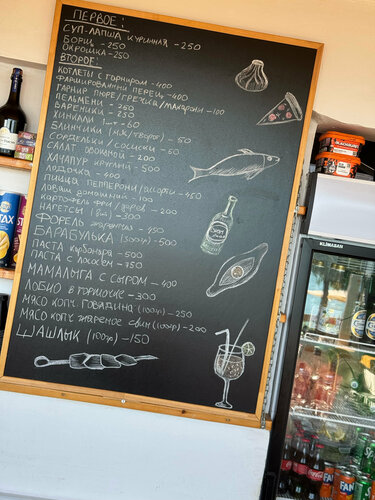 ПЕРВОЕ:
СУП-ЛАПША КУРИННАЯ - 250
БОРЩ - 250
ОКРОШКА - 250
ВТОРОЕ:
КОТЛЕТЫ С ГАРНИРОМ - 400
ФАРШИРОВАННИЙ ПЕРЕЦ - 400
ГАРНИР ПЮРЕ/ГРЕЧКА/МАКАРОНИ - 100
ПЕЛЬМЕНИ - 250
ВАРЕНИКИ - 250
ХИНКАЛИ 1шт - 60
БЛИНЧИКИ (мя/творог) - 50
СОРДЕЛЬКИ / СОСИСКИ - 50
САЛАТ ОВОЩНОЙ - 200
ХАЧАПУР КРУГЛИЙ - 500
ЛОДОЧКА - 400
ПИЦЦА ПЕППЕРОНИ/АССОРТИ - 450
ЛАВАШ ДОМАШНИЙ - 100
КАРТОФЕЛЬ ФРИ / - 200
НАГЕТСЫ (8шт) - 300
ФОРЕЛЬ ЖАРЕНАЯ - 450
БАРАБУЛЬКА (300гр) - 500
ПАСТА КАРБОНАРА - 500
ПАСТА С ЛОСОСЕМ - 750
МАМАЛЫГА С СЫРОМ - 400
ЛОБИО В ГОРШОЧКЕ - 300
МЯСО КОПЧ. ГОВЯДИНА (100гр) - 250
МЯСО КОПЧ ЖАРЕНОЕ СВИН (100гр) - 200
ШАШЛЫК (100гр) - 150
KLIMASAN
STAX
FANTA